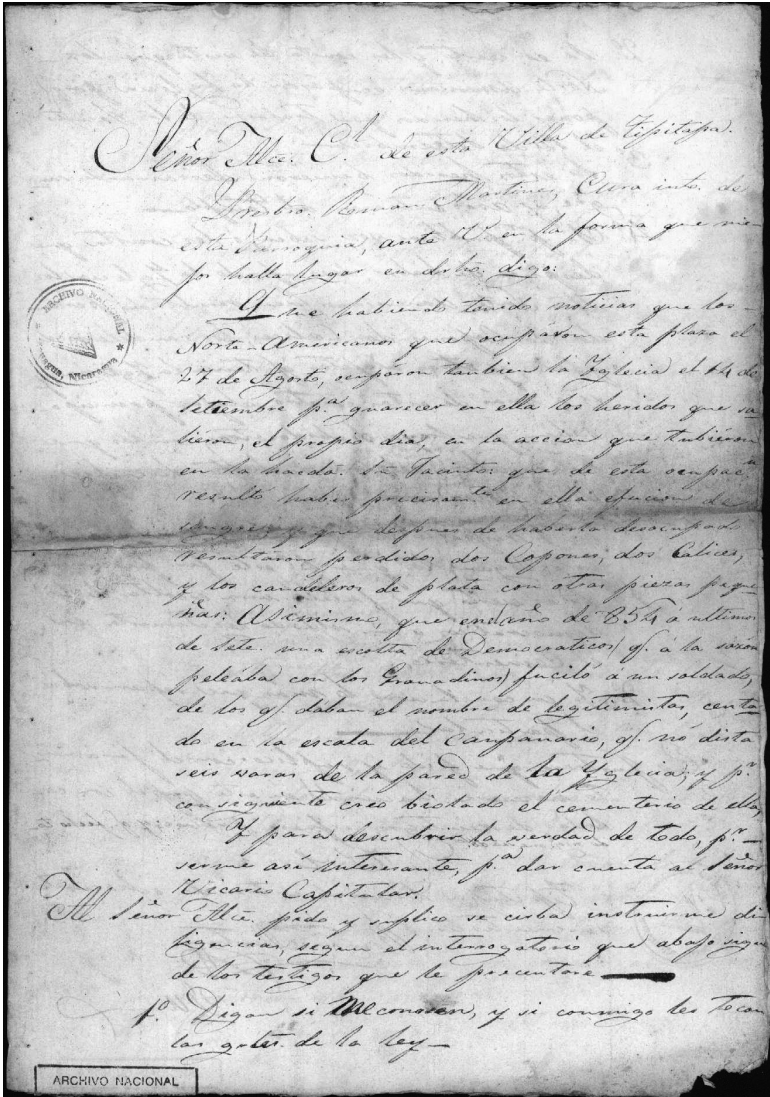 Señor Alce. C.l de esta Villa de Tipitapa.
Presbro. Roman Martinez, Cura into. de
esta Parroquia, ante V. en la forma que me
jor halla lugar en dotro. digo:
Que habiendo tenido noticias que los
Norte-Americanos que ocuparon esta plaza el
27 de Agosto, ocuparon tanbien la Yglecia el 14 de
Setiembre p.a guarecer en ella los heridos que sa
lieron, el propio dia, en la accion que tubieron
en la hacda. Sn. Jacinto: que de esta ocupac.n
resultó haber precisam.te en ella efucion de
sangre, y que despues de haberla desocupado
resultaron perdidos dos Copones, dos Calices,
y los candeleros de plata con otras piezas peque
ñas: Asimismo, que en el año de 854 á ultimos
de Sete. una escolta de Democraticos (q.e á la sazon
peleaba con los Granadinos) fuciló á un soldado,
de los q.e daban el nombre de legitimistas, centa
do en la escala del canpanario, q.e nó dista
seis varas de la pared de la Yglecia; y p.r
consiguiente creo biolado el cementerio de ella,
Y para descubrir la verdad de todo, p.r
serme asi interesante, p.a dar cuenta al Señor
Vicario Capitular.
Al Señor Alce. pido y suplico se cirba instruirme di
ligencias, segun el interrogatorio que abajo sigue
de los testigos que le precentaré
1.o Digan si me conosen, y si conmigo les tocan
las grales. de la ley
ARCHIVO NACIONAL
Managua, Nicaragua
ARCHIVO NACIONAL